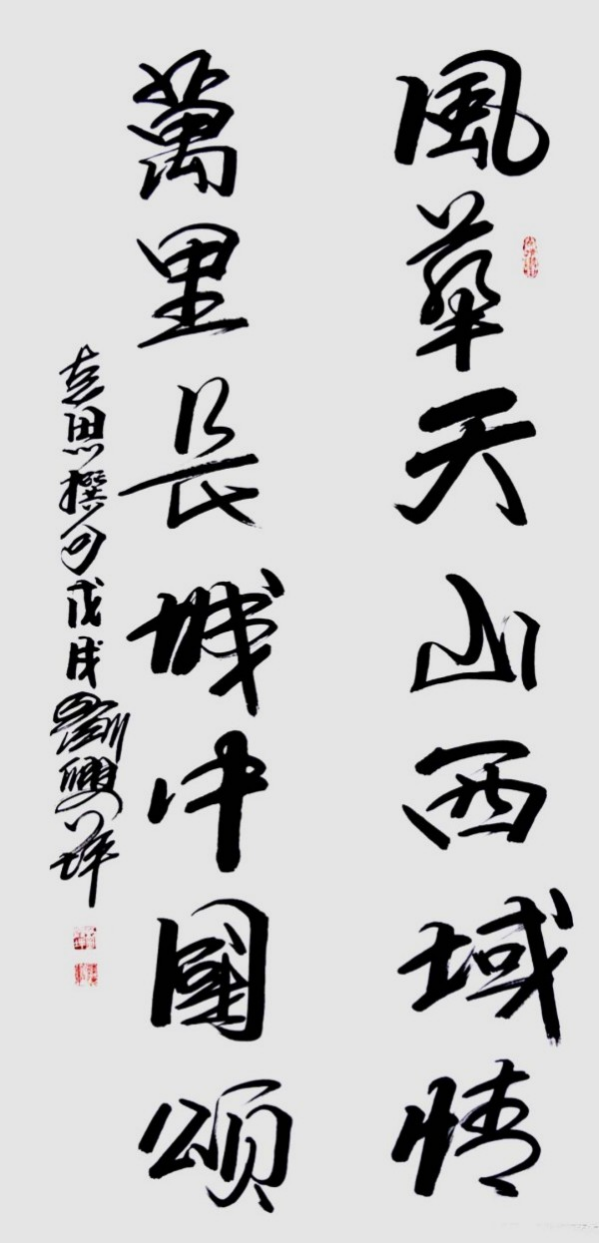 風華天山西域情
萬里長城中國頌
思撰句戊戌劉興祥